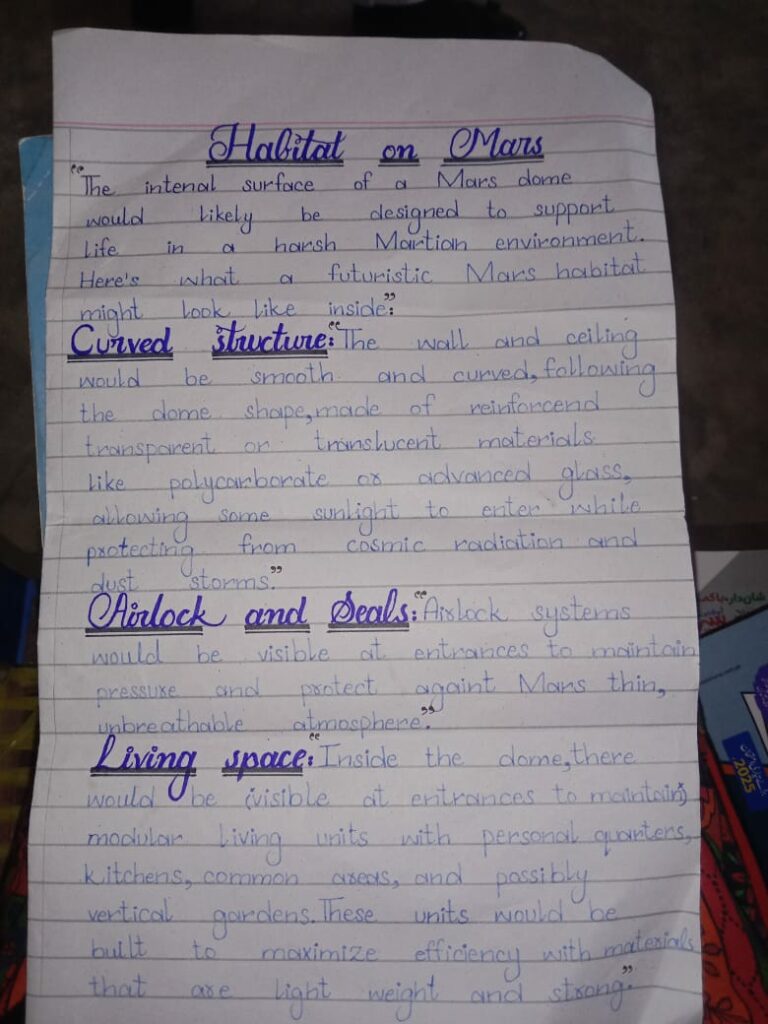 Habitat on Mars
"The intenal surface of a Mars dome
would likely be designed to support
life in a harsh Martian environment.
Here's what a futuristic Mars habitat
might look like inside":
Curved structure: "The wall and ceiling
would be smooth and curved, following
the dome shape, made of reinforcend
transparent or translucent materials
like polycarborate or advanced glass,
allowing some sunlight to enter while
protecting from cosmic radiation and
dust storms."
Airlock and Seals: "Airlock systems
would be visible at entrances to maintain
pressure and protect againt Mars thin,
unbreathable atmosphere."
Living space: "Inside the dome, there
would be (visible at entrances to maintain)
modular living units with personal quarters,
kitchens, common areas, and possibly
vertical gardens. These units would be
built to maximize efficiency with materials
that are light weight and strong."
2025